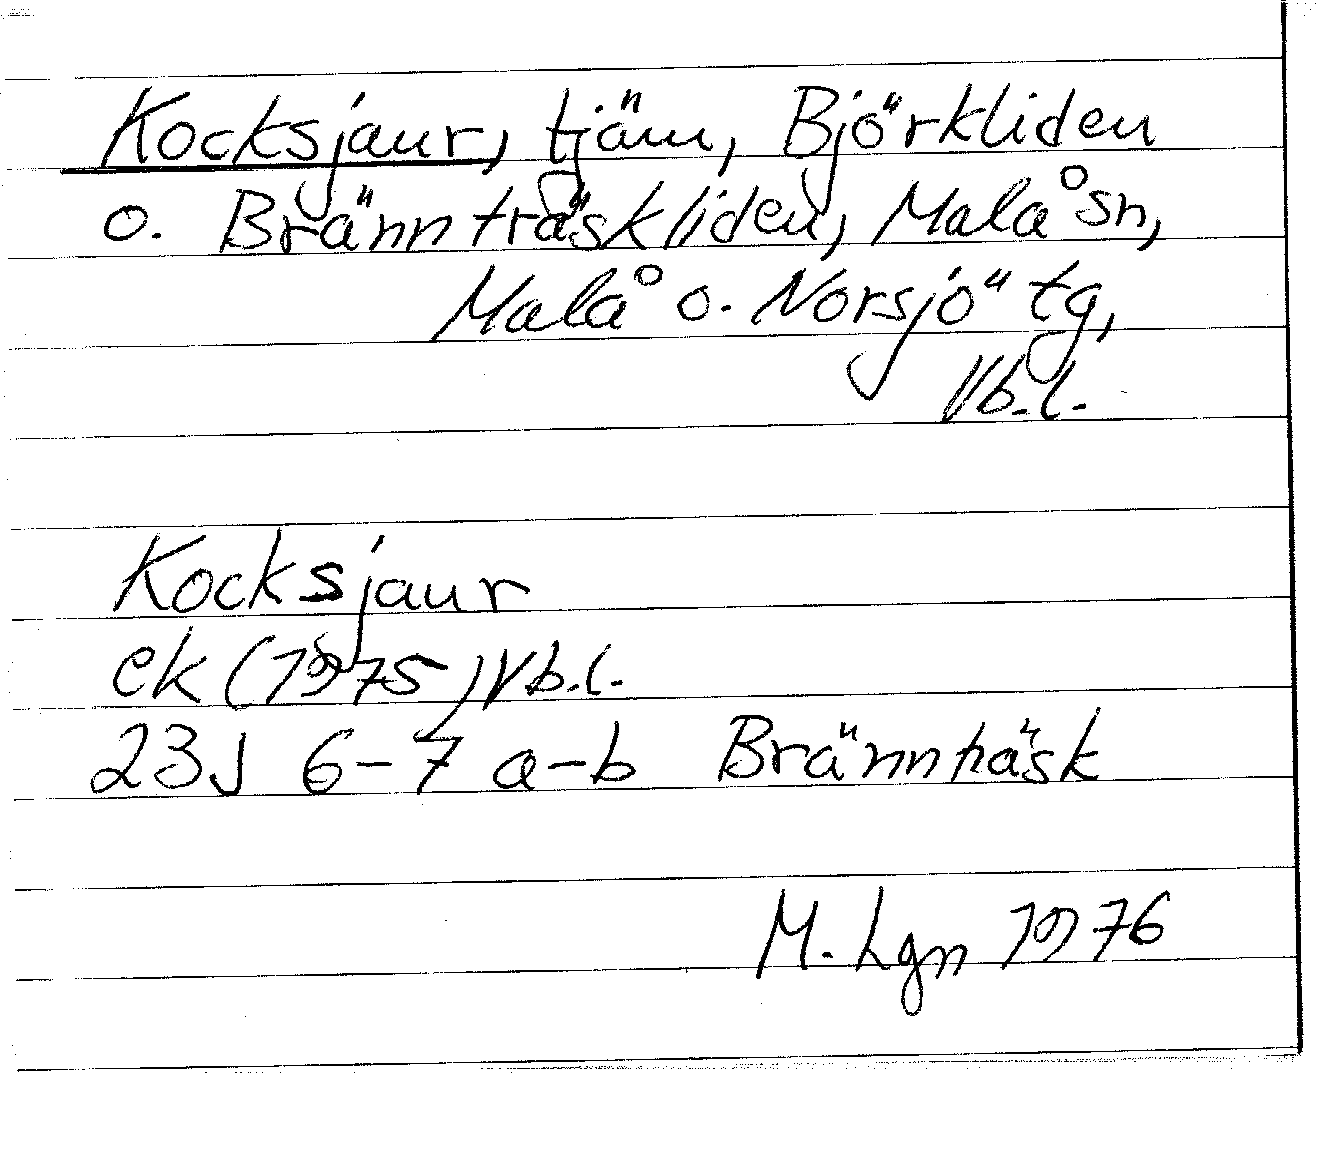 Kocksjaur, tjärn, Björkliden
o. Brännträskliden, Malå sn,
Malå o. Norsjö tg,
Vb.l.
Kocksjaur
ek (1975) Vb.l.
23J 6-7 a-b Brännträsk
M. Lgn 1976